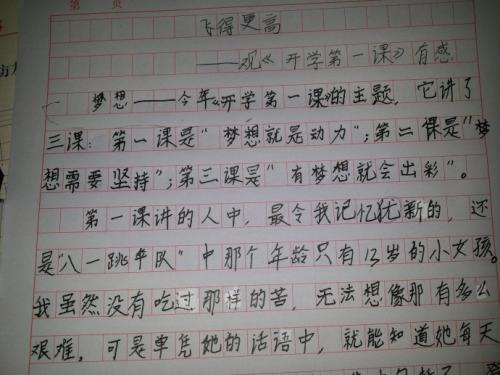 第 页
飞得更高
——观《开学第一课》有感
梦想——今年《开学第一课》的主题，它讲了
三课：第一课是“梦想就是动力”；第二课是“梦
想需要坚持”；第三课是“有梦想就会出彩”。
第一课讲的人中，最令我记忆犹新的，还
是“八一跳伞队”中那个年龄只有13岁的小女孩。
我虽然没有吃过那样的苦，无法想像那有多么
艰难，可是单凭她的话语中，就能知道她每天